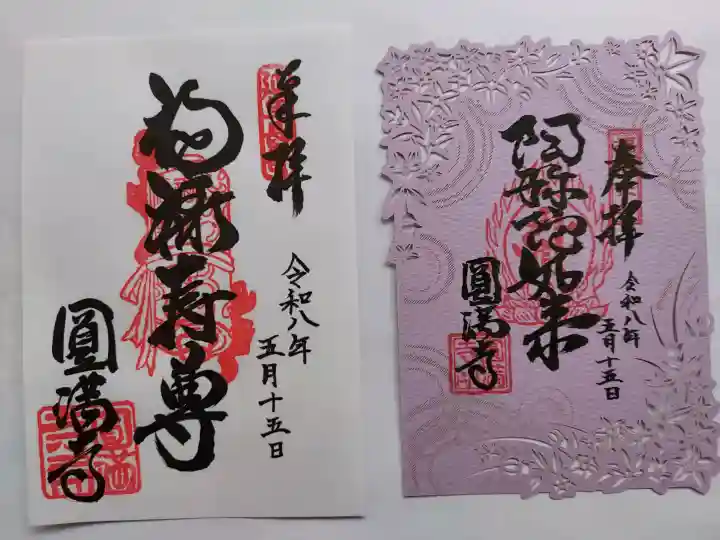 奉拝
福禄寿尊
令和八年
五月十五日
圓満寺
奉拝
阿弥陀如来
令和八年
五月十五日
圓満寺